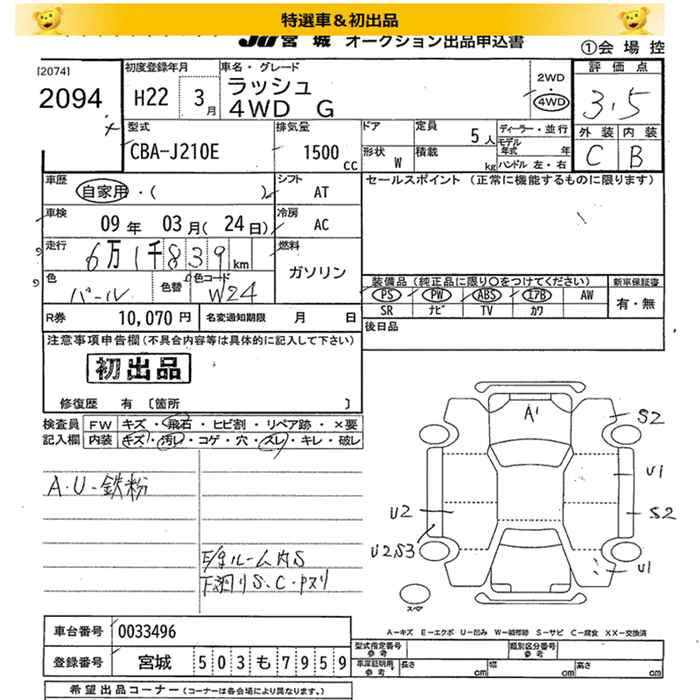 特選車&初出品
JU宮城 オークション出品申込書
①会場控
[2074]
2094
初度登録年月
H22 3月
車名・グレード
ラッシュ
4WD G
2WD
・
4WD
評価点
3.5
外装 内装
C B
型式
CBA-J210E
排気量
1500 cc
ドア
形状 W
定員 5人
積載 kg
ディーラー・並行
モデル年式 年
ハンドル 左・右
車歴
自家用・( )
シフト AT
車検 09年 03月(24日)
冷房 AC
走行 6万1千839km
燃料 ガソリン
色 パール
色替
色コード W24
R券 10,070円
名変通知期限 月 日
セールスポイント (正常に機能するものに限ります)
装備品 (純正品に限り○をつけてください)
PS PW ABS エアB AW
SR ナビ TV カワ
新車保証書
有・無
後日品
注意事項申告欄(不具合内容等は具体的に記入して下さい)
初出品
修復歴 有 〔箇所 〕
検査員記入欄
FW キズ・飛石・ヒビ割・リペア跡・×要
内装 キズ・汚レ・コゲ・穴・スレ・キレ・破レ
A・U・鉄粉
下廻りS.C.
A1
S2
U1
S2
U1
U2
U2S3
スペア
A-キズ E-エクボ U-凹み W-補修跡 S-サビ C-腐食 XX-交換済
車台番号 0033496
登録番号 宮城 503も7959
型式指定番号 参考
類別区分番号 参考
車庫証明用 参考 長さ cm 幅 cm 高さ cm
希望出品コーナー (コーナーは各会場により異なります。)